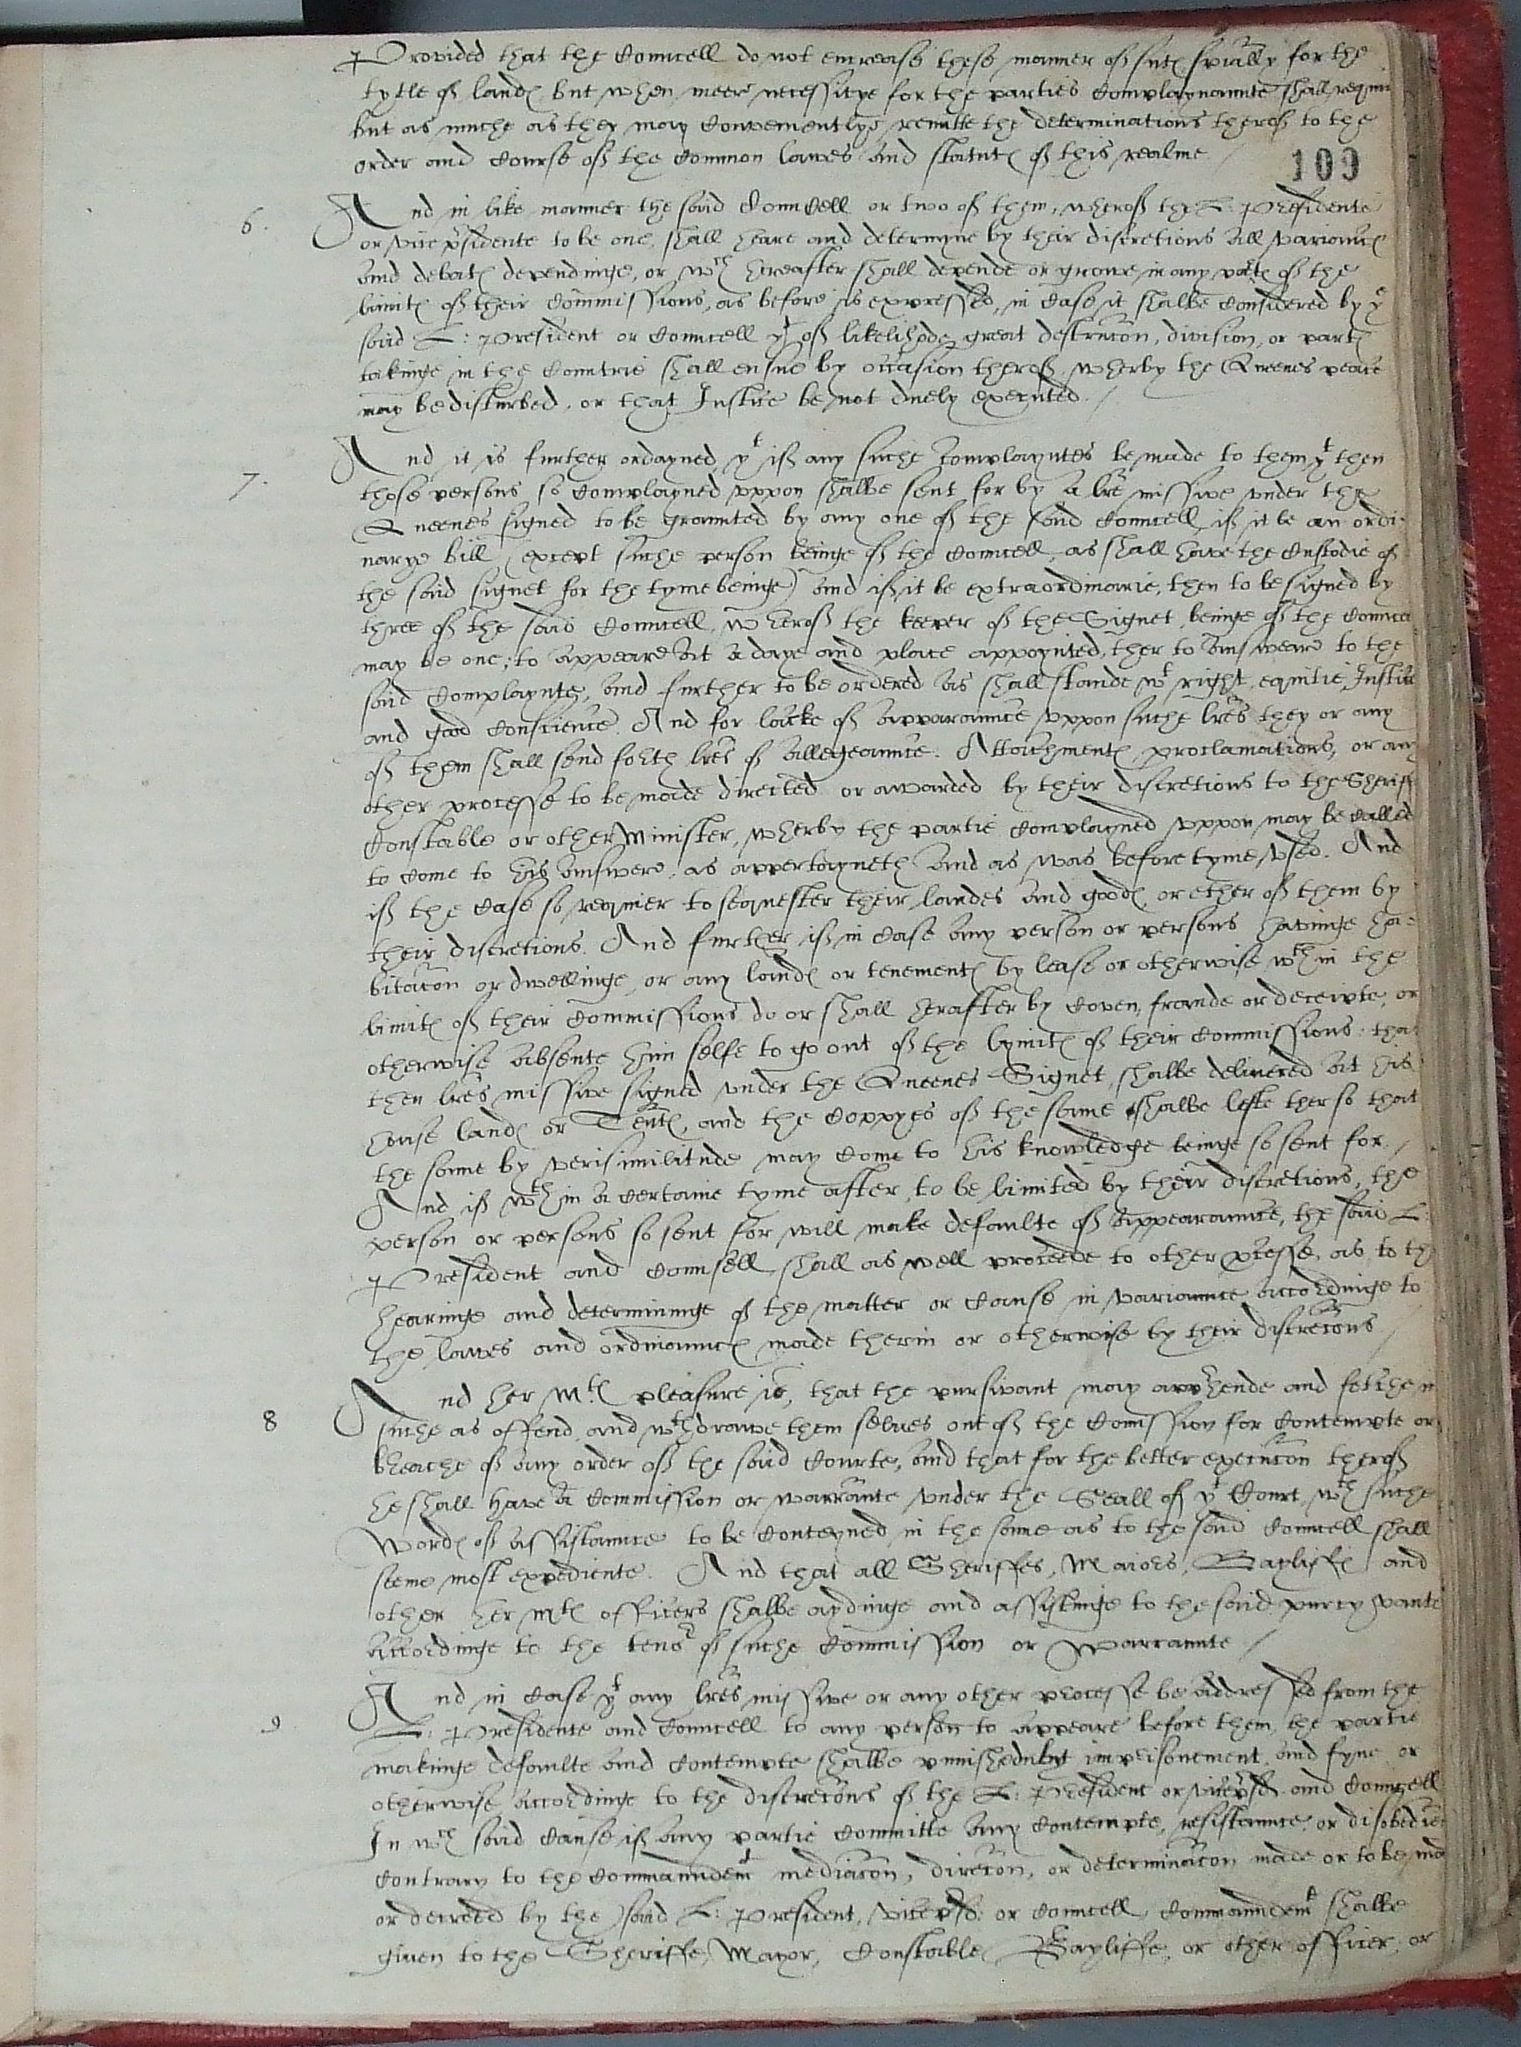 Provided that the Councell do not encrease these manner of sutes specially for the
tytle of landes but when meer necessitye for the parties Complaynaunte shall requi
but as muche as they may Convenientlye remitte the determinations therof to the
order and Course of the Common lawes and statutes of this realme
109
6. And in like manner the said Councell or two of them, wherof the L: Presidente
or vicepresidente to be one, shall heare and determyne by their discretions all variaunces
and debates dependinge, or wch hereafter shall depende or growe in any partes of the
limites of their Commissions, as before is expressed, in Case it shalbe Considered by ye
said L: President or Councell yt of likelihode great destruccon, division, or parte
takinge in the Countrie shall ensue by occasion therof, wherby the Queenes peace
may be disturbed, or that Justice be not duely executed.
7. And it is further ordayned, yt if any suche Complayntes be made to them yt then
those persons so Complayned uppon shalbe sent for by a lre missive under the
Queenes signed to be graunted by any one of the said Councell, if it be an ordi-
narye bill (except suche person beinge of the Councell, as shall have the Custodie of
the said signet for the tyme beinge) and if it be extraordinarie, then to be signed by
three of the said Councell, wherof the keeper of the Signet, beinge of the Councell
may be one; to appeare at a daye and place appoynted, ther to answeare to the
said Complaynte, and further to be ordered as shall stande wt right, equitie, Justice
and good Conscience. And for lacke of apparaunce uppon suche lres they or any
of them shall send forth lres of alleegeaunce. Attachmentes, proclamations, or any
other processe to be made directed or awarded by their discretions to the Sheriff
Constable or other Minister, wherby the partie Complayned uppon may be Called
to Come to his answere, as appertayneth and as was beforetyme used. And
if the Case so requier to sequester their landes and goodes or ether of them by
their discretions. And further if in Case any person or persons havinge ha-
bitacon or dwellinge, or any landes or tenementes by lease or otherwise wthin the
limites of their Commissions do or shall herafter by Coven, fraude or deceipte, or
otherwise absente him selfe to go out of the lymites of their Commissions: that
then lres missive signed under the Queenes Signet, shalbe delivered at his
house landes or Tentes, and the Coppyes of the same shalbe lefte ther so that
the same by verisimilitude may Come to his knowledge beinge so sent for.
And if wthin a Certaine tyme after, to be limited by their discretions, the
person or persons so sent for will make defaulte of appearaunce, the said L:
President and Counsell shall as well proceede to other pcesse, as to th
hearinge and determininge of the matter or Cause in variaunce accordinge to
the lawes and ordinaunces made therin or otherwise by their discrecons
8 And her Mtes pleasure is, that the pursivant may apprhende and fetche in
suche as offend, and wthdrawe them selves out of the Comission for Contempte or
breache of any order of the said Courte, and that for the better execucon therof
he shall have a Commission or warrante under the Seall of yt Court, wth suche
Wordes of assistaunce to be Conteyned in the same as to the said Councell shall
seeme most expediente. And that all Sheriffes, Maiors, Bayliffes and
other her Mtes officers shalbe aydinge and assistinge to the said pursyvante
accordinge to the tenor of suche Commission or Warraunte
9. And in Case yt any lres missive or any other processe be addressed from the
L: Presidente and Councell to any person to appeare before them, the partie
makinge defaulte and Contempte shalbe punished by imprisonement and fyne or
otherwise accordinge to the discrecons of the L: President or vicepsd and Councell
In wch said Cause if any partie Committe any Contempte, resistaunce, or disobedien
Contrary to the Commaundemt mediacon, direcon, or determinacon made or to be ma
or decreed by the said L: President, vicepsd: or Councell, Commaundemt shalbe
given to the Sheriffe, Mayor, Constable, Bayliffe, or other officer, or